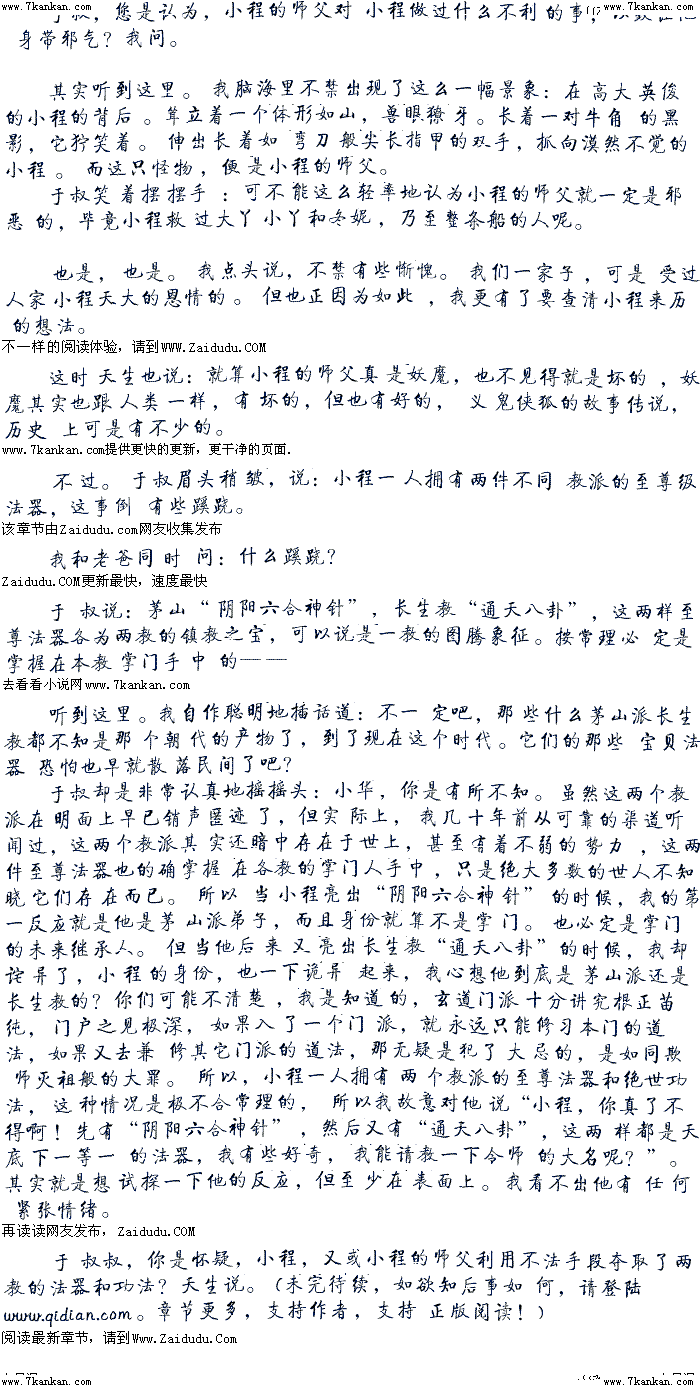 www.7kankan.com www.7kankan.com
于叔,您是认为,小程的师父对 小程做过什么不利 的事,
身带邪气? 我问。
其实听到这里。 我脑海里不禁出现了这么一幅景象:在 高大 英俊
的小程的背后 。耸立着一个体形如山,兽眼獠 牙。长着一对牛角 的黑
影,它狞笑着。 伸出长着如 弯刀 般尖长指甲的双手,抓向漠然不觉的
小程 。 而这只怪物,便 是小程的师父。
于叔笑 着摆摆手 :可不能这么轻率地认为小程的师父就一定是邪
恶 的,毕竟小程救 过大丫 小丫和冬妮 ,乃至整条船的人呢。
也是,也是。 我点头说,不禁有些惭愧。 我们一家子 ,可是 受过
人家小程天大的恩情的 。但也正因为如此 ,我更有了要查清小程来历
的想法。
不一样的阅读体验,请到WWW.Zaidudu.COM
这时 天生也说:就算小程的师父真 是妖魔,也不见得就是坏的 ,妖
魔其实也跟 人类 一样,有 坏的,但也有好的, 义 鬼侠狐的故事传说,
历史 上可是有不少的。
www.7kankan.com提供更快的更新,更干净的页面.
不 过。 于叔眉头稍 皱,说:小程一 人拥有两件不同 教派的至尊级
法器,这事倒 有些蹊跷。
该章节由Zaidudu.com网友收集发布
我和老爸同 时 问:什么蹊跷?
Zaidudu.COM更新最快,速度最快
于 叔说:茅山 “ 阴阳六合神针”,长生教“通天八卦”,这两样至
尊法器各为两教的镇教之宝,可以说是一教的图腾象征。按常理必 定是
掌握在本教 掌门手 中 的——
去看看小说网 www.7kankan.com
听到这里。我自作聪明地插话道:不一 定吧,那 些什么茅山派长生
教都不知是那 个朝 代的产物了,到了现在这个时代。它们的那些 宝贝法
器 恐怕也早就散 落民间了吧?
于叔却是非常认真地摇摇头:小华,你是有所不知。 虽然这两个教
派在 明面上早已销声匿迹 了,但实 际上, 我几十年前从可靠的渠道听
闻过,这两个教派其 实还暗中存在于世上,甚至有着不弱的势力 ,这两
件至尊法器也的确掌握 在各教的掌门人手中 ,只是绝大多数的世人不知
晓它们存在而已。 所以 当 小程亮出“阴阳六合神 针” 的时候,我的第
一反应就是他是茅 山派弟子,而且身份就 算不是掌 门。 也必定是掌门
的未来继承人。 但当他后 来 又 亮出长生教“通天八卦”的时候,我却
诧异了,小 程 的身份,也一下诡异 起来,我心想他到底是 茅山派还是
长生教的?你们可能不清楚 ,我是知道 的,玄道门派 十分讲究根正苗
纯, 门户之见极深, 如果入 了一个门 派,就 永远只能修习本门的道
法,如果又去兼 修其它门派的道法,那无疑是犯了 大 忌的,是如同欺
师灭祖般的大罪。 所以,小程一人拥有 两 个教派的至尊法器和绝世功
法, 这 种情况是极不合常理的, 所以我故意对他说“小程,你真了不
得啊!先有“阴阳六合神针”,然后又有“通天八卦”,这两 样都是天
底 下一等一 的法器,我有些好奇,我能请教一下令师 的大名呢?”。
其实就是想 试探一下他的反应,但至 少在 表面上。我看不出他有 任 何
紧张情绪。
再读读网友发布, Zaidudu.COM
于 叔叔,你是怀疑,小程,又或小程的师父利用不法手段夺取了两
教的法器和功法?天生说。(未完待续,如欲知后事如 何,请登陆
www.qidian.com。章节更多,支持作者,支持 正版阅读!)
阅读最新章节,请到Www.Zaidudu.Com
www.7kankan.com www.7kankan.com